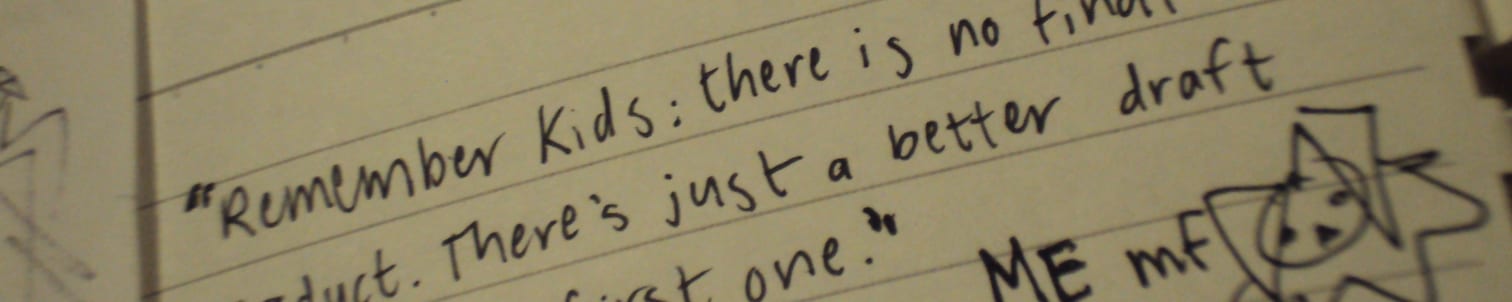 "Remember Kids: there is no final
duct. There's just a better draft
one."
ME mf